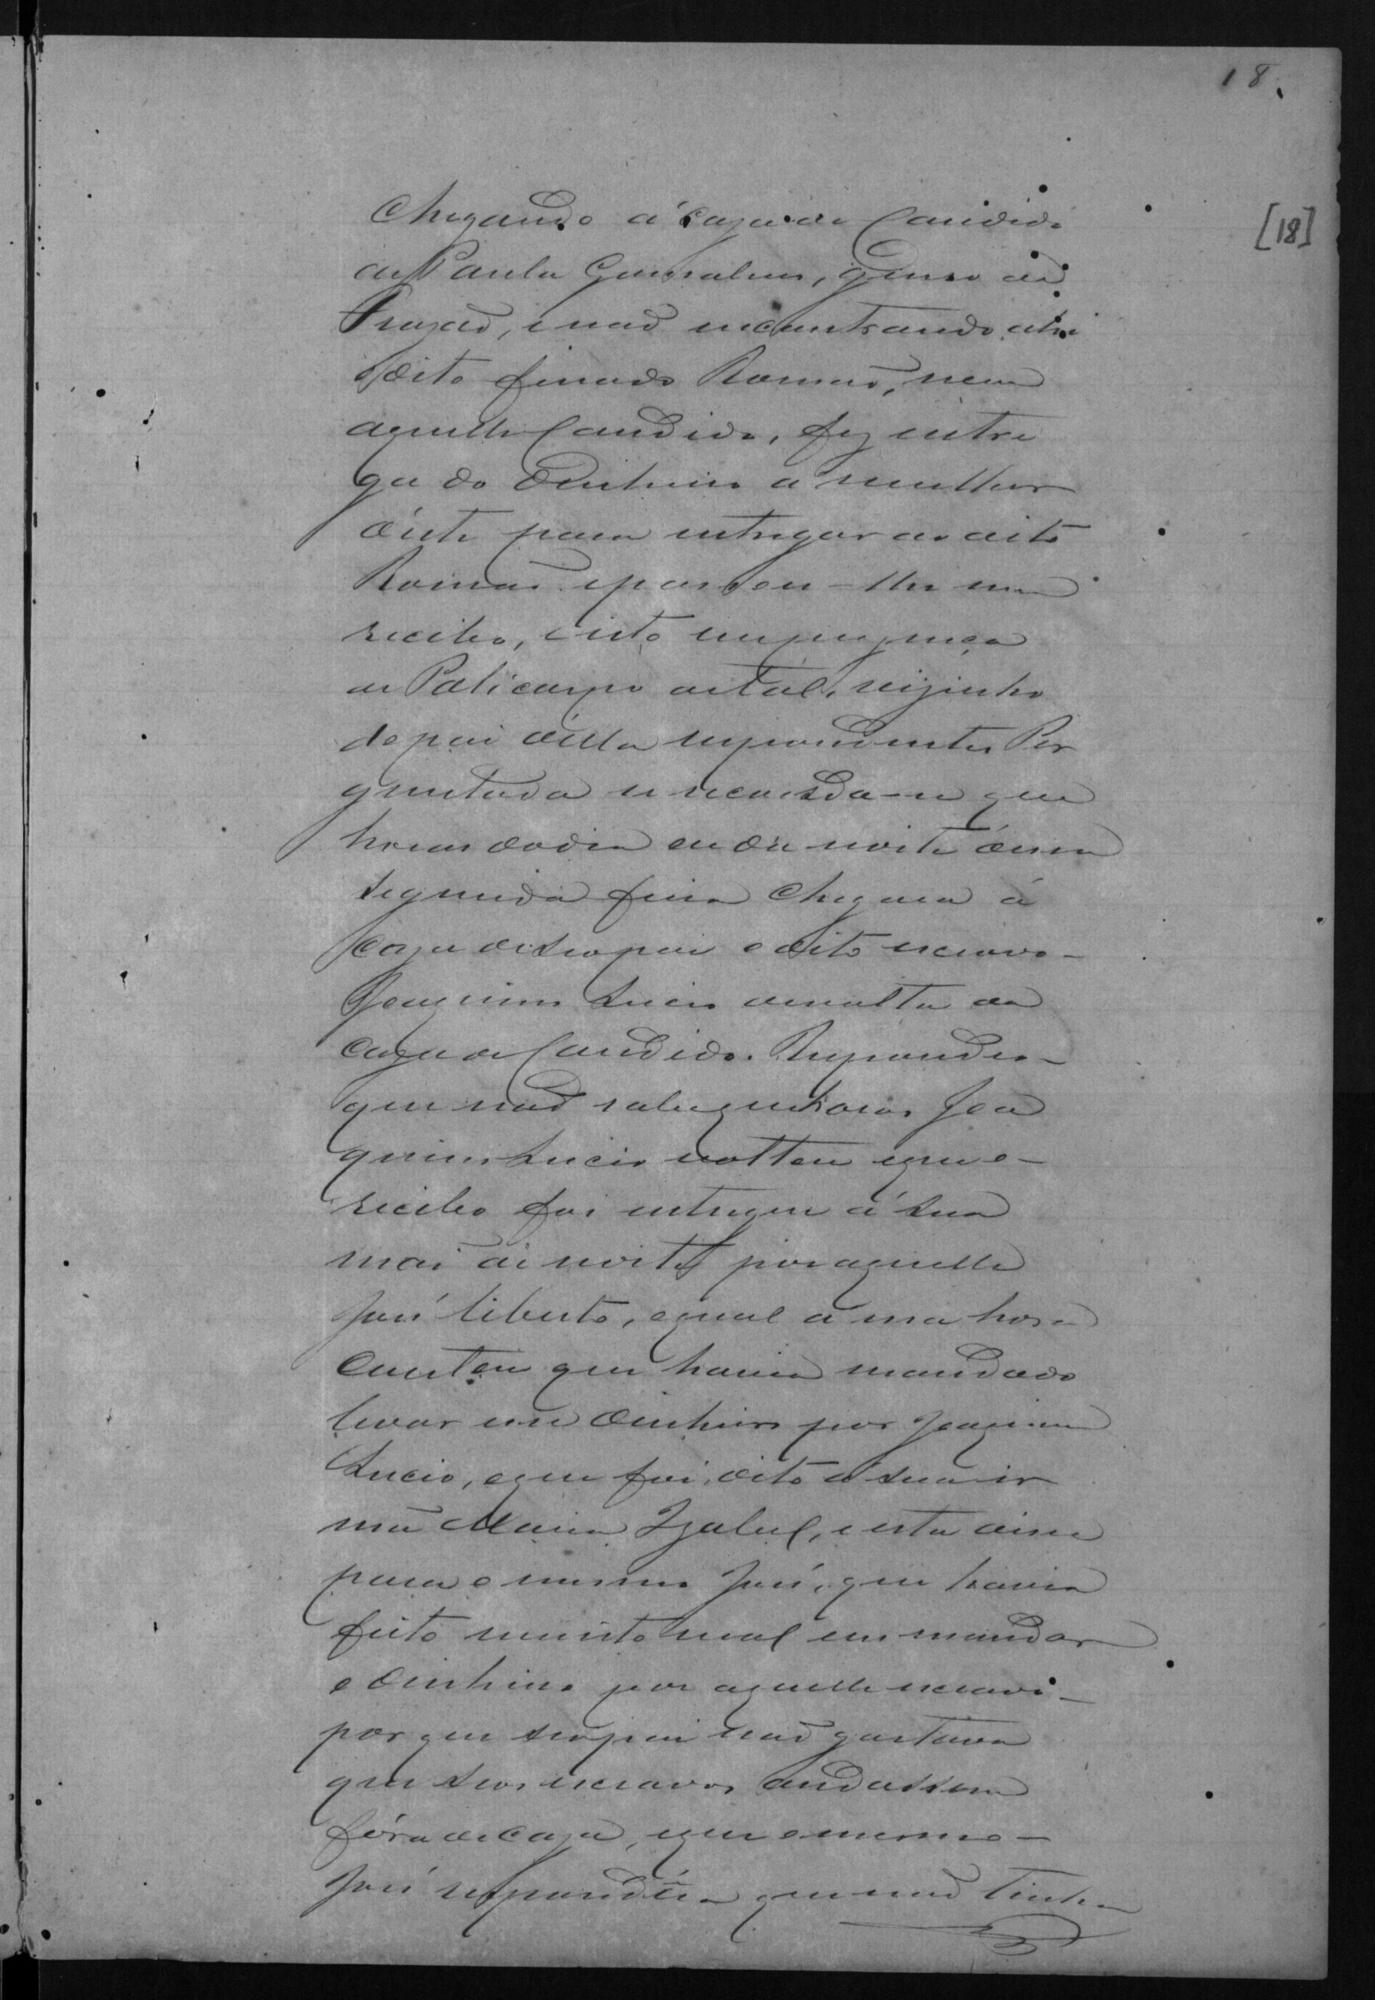 18.
[18]
Chegando á caza de Candido
de Paula Gonsalves, genro de
e não encontrando ahi
o dito finado Romão, nem
aquelle Candido, fez entre
ga do dinheiro a mulher
d'este para entregar ao dito
Romão e passou-lhe um
recibo, e isto em prezença
de Policarpo de tal, vizinho
do pai d'ella respondente. Per
guntada se recorda-se que
horas do dia ou da noite d'essa
segunda feira chegara á
caza de seo pai o dito escravo
Joaquim Lucio de volta da
caza de Candido. Respondeo
que não sabe que horas Joa
quim Lucio voltou e que o
recibo foi entregue á sua
mai de noite por aquelle
José liberto, o qual a essa hora
contou que havia mandado
levar esse dinheiro por Joaquim
Lucio, o que foi dito á sua ir
mã Maria Izabel, e esta disse
para o mesmo José, que havia
feito muito mal em mandar
o dinheiro por aquelle escravo
porque seo pai não gostava
que seos escravos andassem
fóra de caza, e que o mesmo
José respondêra que não tinha